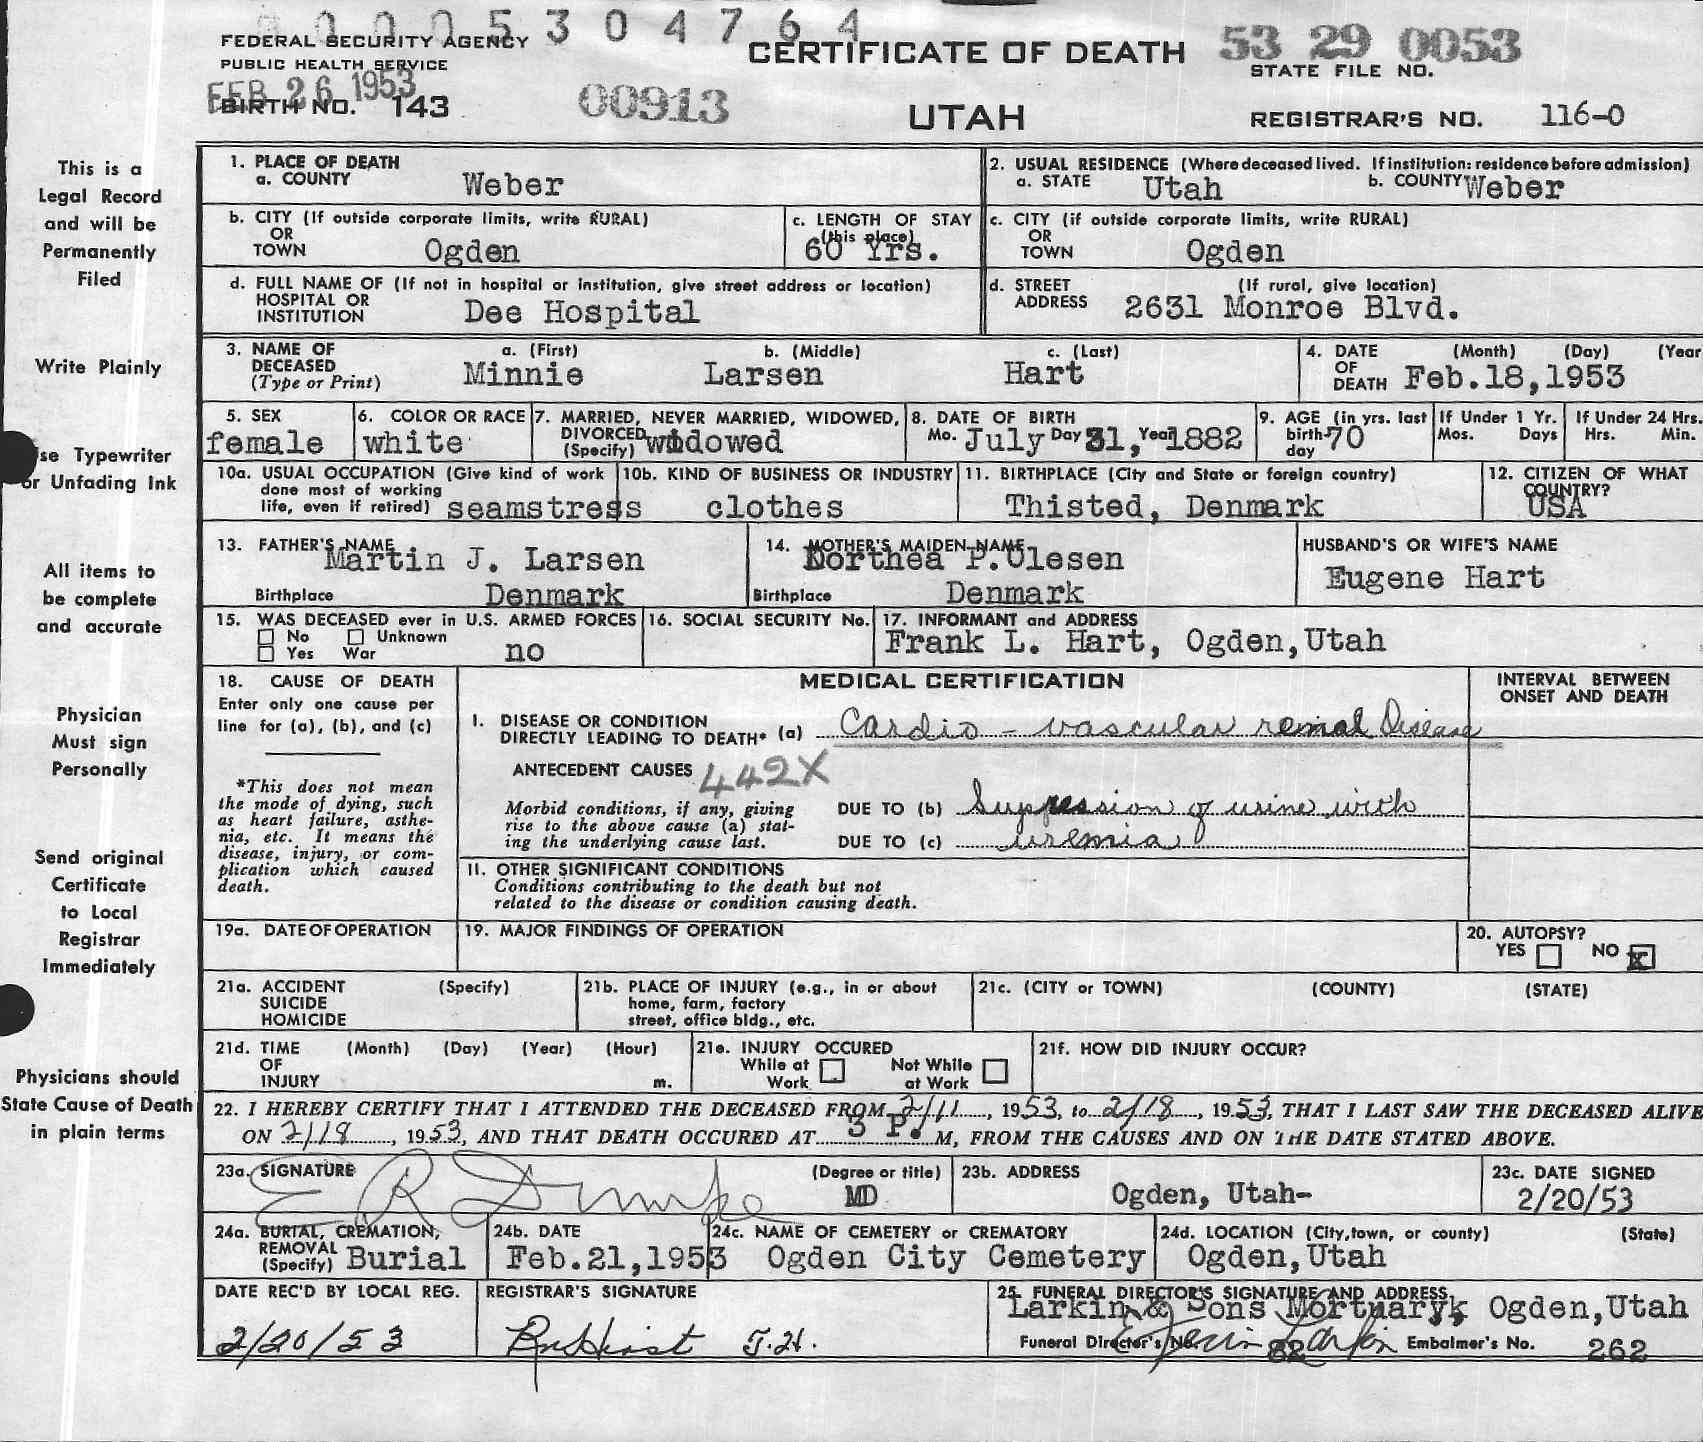 0005304764
FEDERAL SECURITY AGENCY
PUBLIC HEALTH SERVICE
FEB 26 1953
BIRTH NO. 143
00913
CERTIFICATE OF DEATH
UTAH
53 29 0053
STATE FILE NO.
REGISTRAR'S NO. 116-0
This is a
Legal Record
and will be
Permanently
Filed
Write Plainly
se Typewriter
or Unfading Ink
All items to
be complete
and accurate
Physician
Must sign
Personally
Send original
Certificate
to Local
Registrar
Immediately
Physicians should
State Cause of Death
in plain terms
1. PLACE OF DEATH
a. COUNTY Weber
2. USUAL RESIDENCE (Where deceased lived. If institution: residence before admission)
a. STATE Utah b. COUNTY Weber
b. CITY (If outside corporate limits, write RURAL)
OR
TOWN Ogden
c. LENGTH OF STAY
(this place)
60 Yrs.
c. CITY (if outside corporate limits, write RURAL)
OR
TOWN Ogden
d. FULL NAME OF (If not in hospital or institution, give street address or location)
HOSPITAL OR
INSTITUTION Dee Hospital
d. STREET (If rural, give location)
ADDRESS 2631 Monroe Blvd.
3. NAME OF a. (First) b. (Middle) c. (Last)
DECEASED
(Type or Print) Minnie Larsen Hart
4. DATE (Month) (Day) (Year
OF
DEATH Feb.18,1953
5. SEX
female
6. COLOR OR RACE
white
7. MARRIED, NEVER MARRIED, WIDOWED,
DIVORCED
(Specify) widowed
8. DATE OF BIRTH
Mo. July Day 31, Year 1882
9. AGE (in yrs. last
birth-
day 70
If Under 1 Yr.
Mos. Days
If Under 24 Hrs.
Hrs. Min.
10a. USUAL OCCUPATION (Give kind of work
done most of working
life, even if retired) seamstress
10b. KIND OF BUSINESS OR INDUSTRY
clothes
11. BIRTHPLACE (City and State or foreign country)
Thisted, Denmark
12. CITIZEN OF WHAT
COUNTRY?
USA
13. FATHER'S NAME
Martin J. Larsen
Birthplace Denmark
14. MOTHER'S MAIDEN NAME
Dorthea P. Olesen
Birthplace Denmark
HUSBAND'S OR WIFE'S NAME
Eugene Hart
15. WAS DECEASED ever in U.S. ARMED FORCES
No Unknown
Yes War no
16. SOCIAL SECURITY No.
17. INFORMANT and ADDRESS
Frank L. Hart, Ogden,Utah
18. CAUSE OF DEATH
Enter only one cause per
line for (a), (b), and (c)
*This does not mean
the mode of dying, such
as heart failure, asthe-
nia, etc. It means the
disease, injury, or com-
plication which caused
death.
MEDICAL CERTIFICATION
INTERVAL BETWEEN
ONSET AND DEATH
I. DISEASE OR CONDITION
DIRECTLY LEADING TO DEATH* (a) Cardio - vascular renal Disease
ANTECEDENT CAUSES 442X
Morbid conditions, if any, giving
rise to the above cause (a) stat-
ing the underlying cause last.
DUE TO (b) Suppression of urine with
DUE TO (c) uremia
11. OTHER SIGNIFICANT CONDITIONS
Conditions contributing to the death but not
related to the disease or condition causing death.
19a. DATE OF OPERATION
19. MAJOR FINDINGS OF OPERATION
20. AUTOPSY?
YES NO X
21a. ACCIDENT (Specify)
SUICIDE
HOMICIDE
21b. PLACE OF INJURY (e.g., in or about
home, farm, factory
street, office bldg., etc.
21c. (CITY or TOWN) (COUNTY) (STATE)
21d. TIME (Month) (Day) (Year) (Hour)
OF
INJURY m.
21e. INJURY OCCURED
While at Not While
Work at Work
21f. HOW DID INJURY OCCUR?
22. I HEREBY CERTIFY THAT I ATTENDED THE DECEASED FROM 2/11, 1953, to 2/18, 1953, THAT I LAST SAW THE DECEASED ALIVE
ON 2/18, 1953, AND THAT DEATH OCCURED AT 3 P.M, FROM THE CAUSES AND ON THE DATE STATED ABOVE.
23a. SIGNATURE (Degree or title)
E R Dumke MD
23b. ADDRESS
Ogden, Utah-
23c. DATE SIGNED
2/20/53
24a. BURIAL, CREMATION,
REMOVAL
(Specify) Burial
24b. DATE
Feb.21,1953
24c. NAME OF CEMETERY or CREMATORY
Ogden City Cemetery
24d. LOCATION (City,town, or county) (State)
Ogden,Utah
DATE REC'D BY LOCAL REG.
2/20/53
REGISTRAR'S SIGNATURE
J.H.
25. FUNERAL DIRECTOR'S SIGNATURE AND ADDRESS
Larkin & Sons Mortuary, Ogden,Utah
Funeral Director's No. 82 Embalmer's No. 262